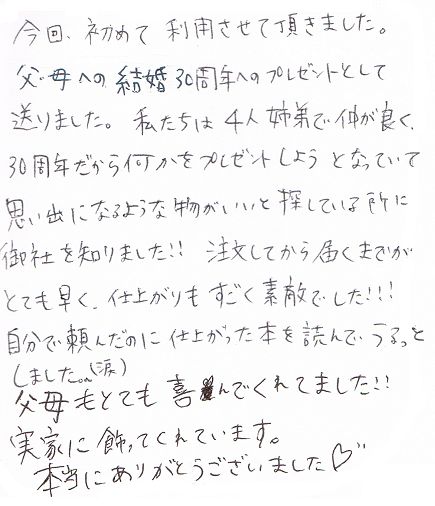 今回、初めて利用させて頂きました。
父・母への結婚30周年へのプレゼントとして
送りました。私たちは4人姉弟で仲が良く、
30周年だから何かをプレゼントしようとなっていて
思い出になるような物がいいと探している所に
御社を知りました!! 注文してから届くまでが
とても早く、仕上がりもすごく素敵でした!!!
自分で頼んだのに仕上がった本を読んで、うるっと
しました。(涙)
父母もとても喜んでくれてました!!
実家に飾ってくれています。
本当にありがとうございました♡